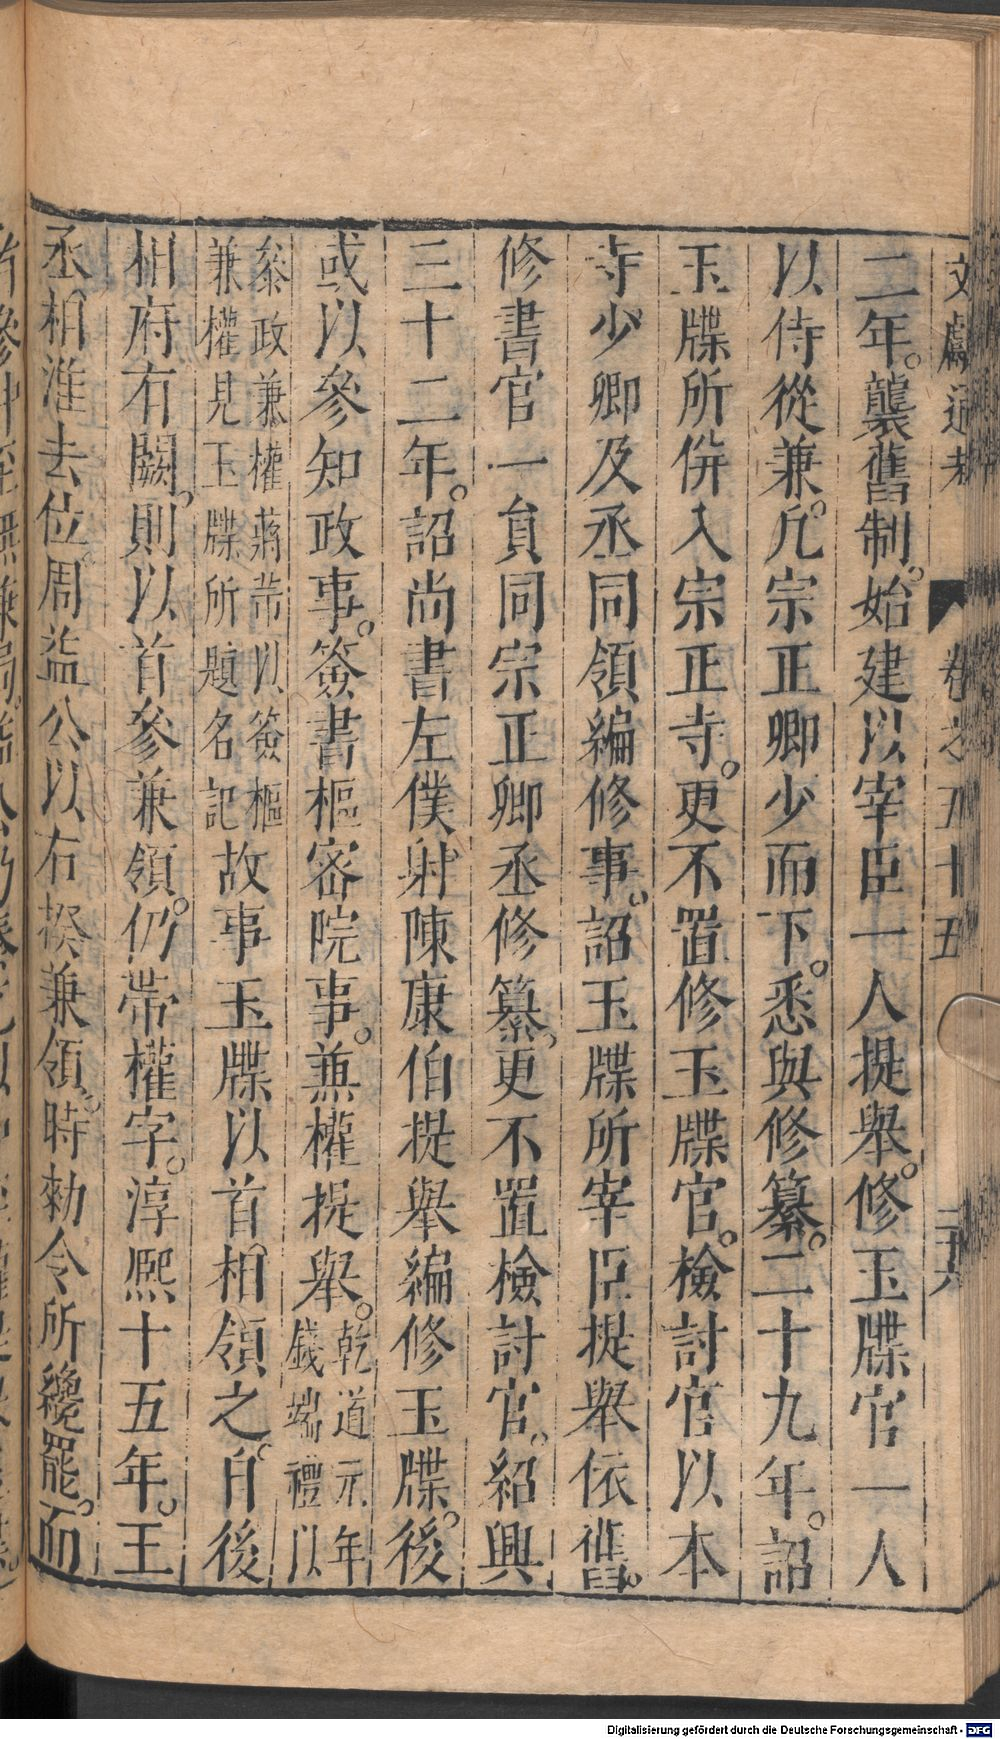 文獻通考 卷之五十五
二年。襲舊制。始建以宰臣一人提舉。修玉牒官一人
以侍從兼。凡宗正卿少而下。悉與修纂。二十九年。詔
玉牒所併入宗正寺。更不置修玉牒官。檢討官以本
寺少卿及丞同領編修事。詔玉牒所宰臣提舉依舊。
修書官一員同宗正卿丞修纂。更不置檢討官。紹興
三十二年。詔尚書左僕射陳康伯提舉編修玉牒。後
或以參知政事。簽書樞密院事。兼權提舉。乾道元年
錢端禮以
參政兼權蔣芾以簽樞
兼權見玉牒所題名記
故事玉牒以首相領之。自後
相府有闕。則以首參兼領。仍帶權字。淳熙十五年。王
丞相淮去位。周益公以右揆兼領。時勑令所纔罷。而
Digitalisierung gefördert durch die Deutsche Forschungsgemeinschaft - DFG